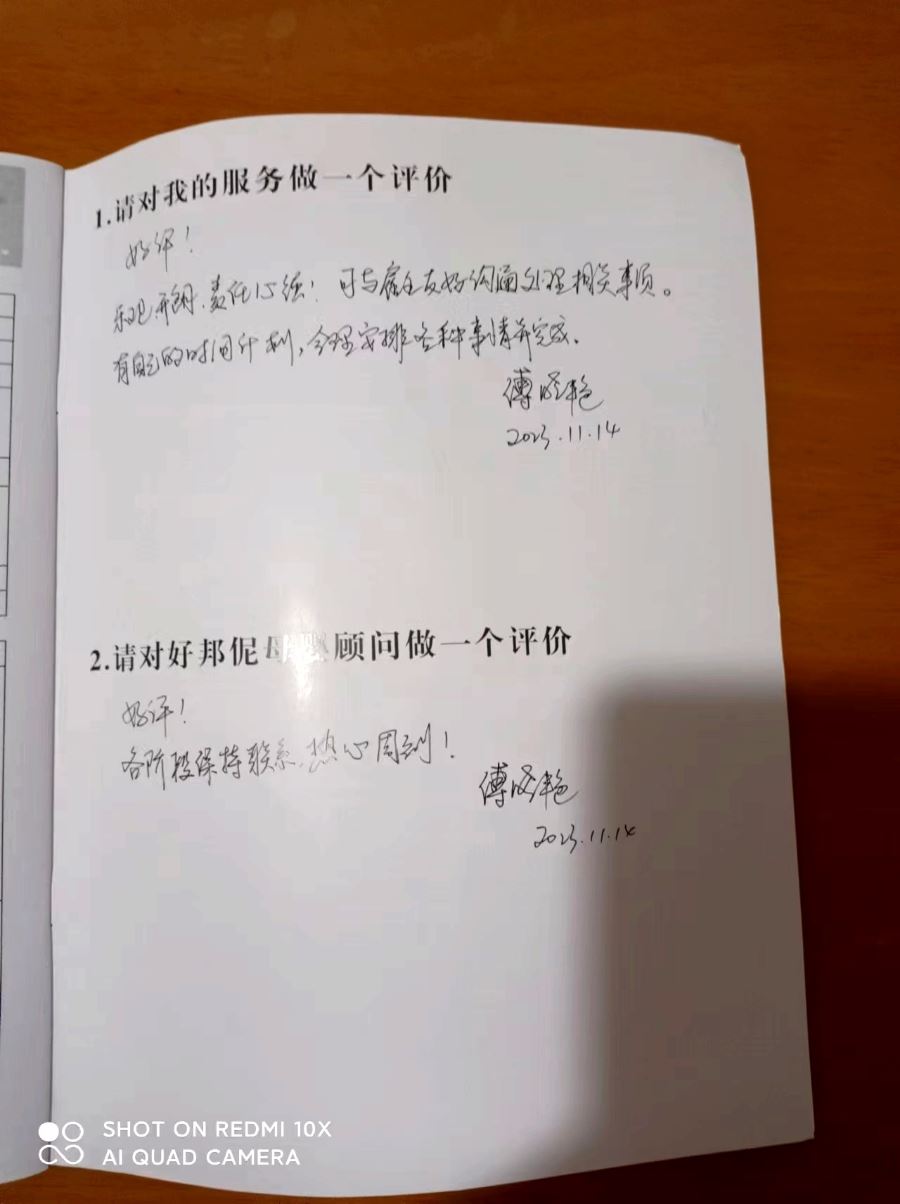 1.请对我的服务做一个评价
好评!
乐观开朗,责任心强!可与雇主友好沟通处理相关事项。
有自己的时间计划,合理安排各种事情并完成。
傅 艳
2023.11.14
2.请对好邦伲母婴顾问做一个评价
好评!
各阶段保持联系,热心周到!
傅 艳
2023.11.14
SHOT ON REDMI 10X
AI QUAD CAMERA